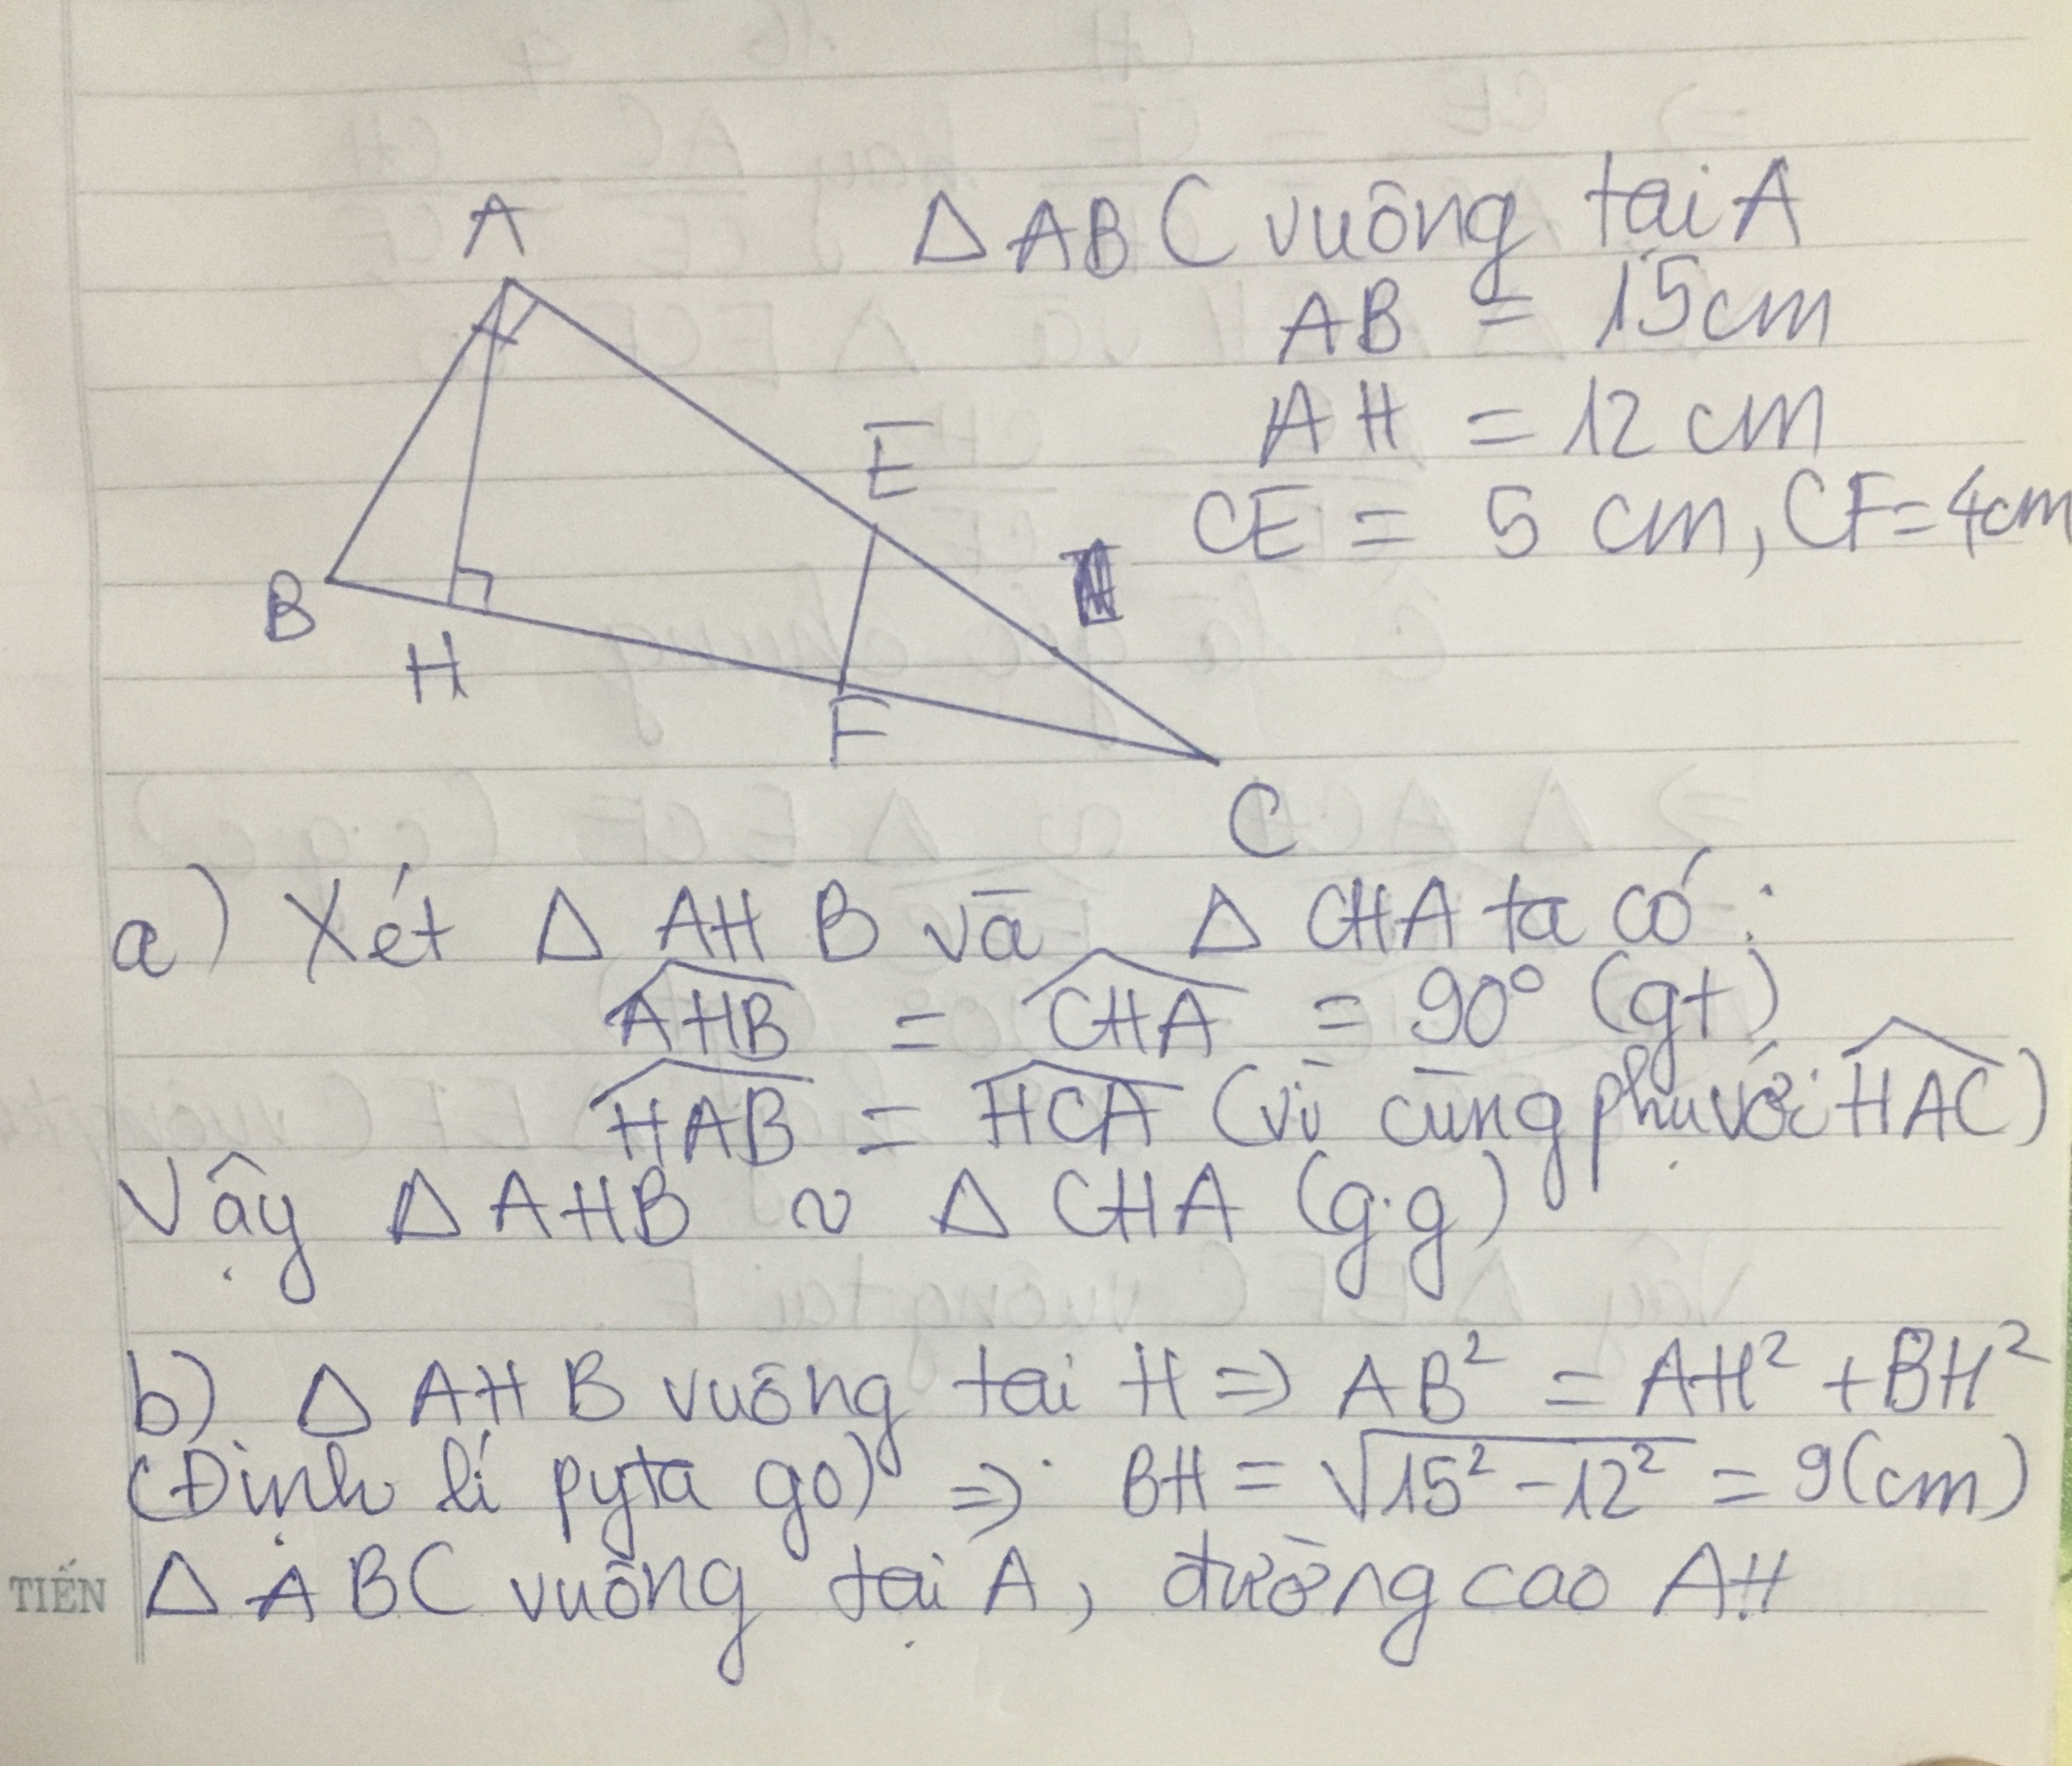 A
E
B
H
F
C
△ABC vuông tại A
AB = 15cm
AH = 12 cm
CE = 5 cm, CF=4cm
a) Xét △ AHB và △ CHA ta có:
\widehat{AHB} = \widehat{CHA} = 90° (gt)
\widehat{HAB} = \widehat{HCA} (vì cùng phụ với \widehat{HAC})
Vậy △ AHB ∽ △ CHA (g.g)
b) △ AHB vuông tại H => AB² = AH² + BH²
(Định lí pyta go) => BH = √(15² - 12²) = 9(cm)
TIẾN
△ ABC vuông tại A, đường cao AH